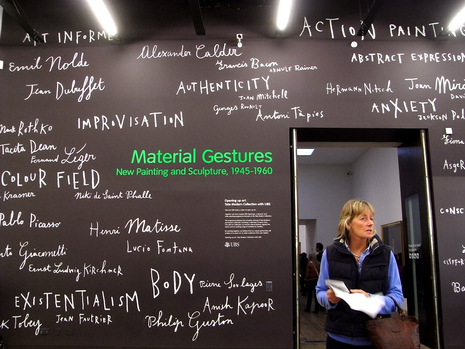 ART INFORMEL
ACTION PAINT
Alexander Calder
Emil Nolde
Francis Bacon
ARNULF RAINER
ABSTRACT EXPRESSION
Jean Dubuffet
AUTHENTICITY
HERMANN Nitsch
Joan Miró
JOAN Mitchell
Georges Rouault
Antoni Tàpies
ANXIETY
JACKSON Pol
Mark Rothko
IMPROVISATION
Tacita Dean
Fernand Léger
Material Gestures
New Painting and Sculpture, 1945-1960
COLOUR FIELD
Krasner
Niki de Saint Phalle
Opening up art
Tate Modern Collection with UBS
Pablo Picasso
Henri Matisse
Lucio Fontana
Giacometti
UBS
Ernst Ludwig Kirchner
BODY
Pierre Soulages
EXISTENTIALISM
Anish Kapoor
K Tobey
JEAN FAUTRIER
Philip Guston